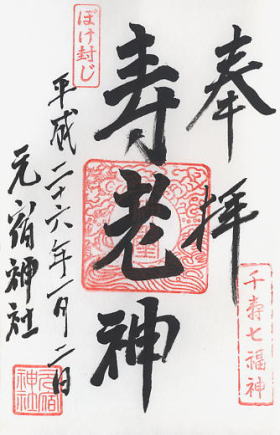 奉拝
千寿七福神
ぼけ封じ
寿老神
平成二十六年一月二日
元宿神社
元宿神社